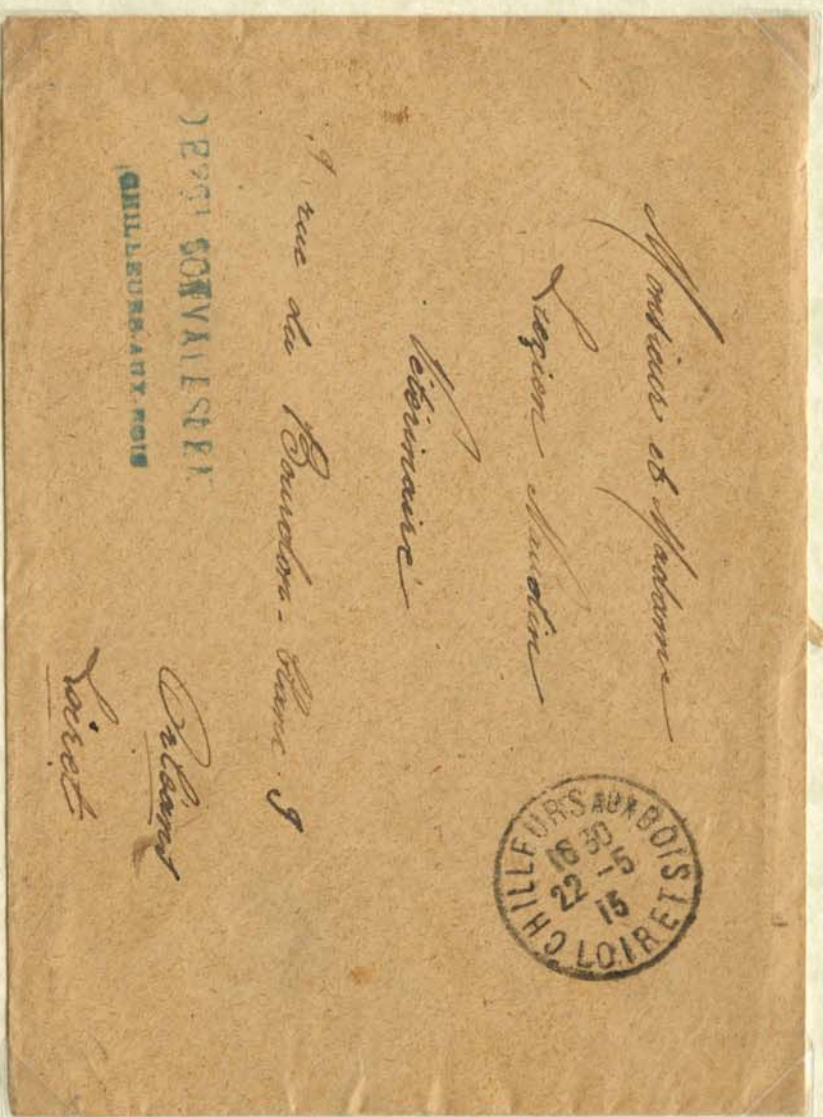 Monsieur et Madame
Naudin
Vétérinaire
9 rue du Bourdon-Blanc. 9
Orléans
Loiret
CHILLEURS AUX BOIS
16 30
22 -5
15
LOIRET
CONVALESCE
CHILLEURS-AUX-BOIS